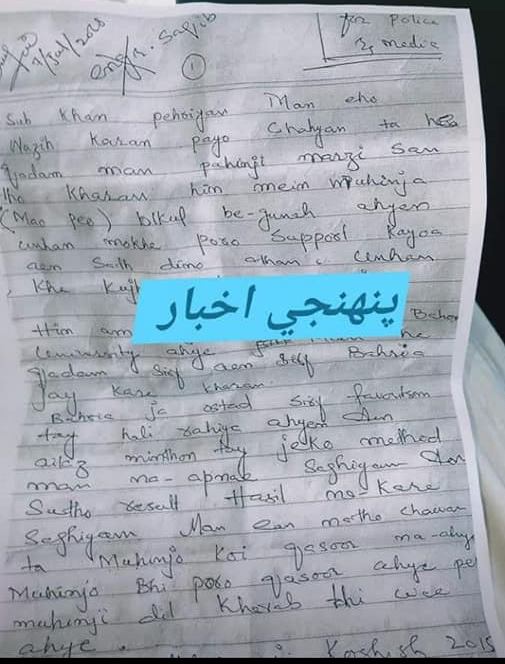 for Police
& media
Engr. Saqib
1
Sub khan pehriyan Man eho
Wazih Karan payo Chahyan ta hea
Qadam man pahinji marzi San
tho kharan him mein muhinja
(Mao peo) bikul be-gunah ahyen
unhan mokhe poro Support Kayoa
aen Sath dino athan unhan
Khe
پنهنجي اخبار
Him
University ahye
Qadam Sirf aen Self Bahria
Jay Kare kharan
Bahria ja ostad Sirf favoritsm
tay hali rahiya ahyen
minthon tay jeko method
man na-apnae Saghiyam
Sutho result Hasil na-kare
Saghiyam Man ean natho chawan
ta Muhinjo Koi qasoor na-ahye
Muhinjo Bhi poro qasoor ahye pe
muhinji dil Kharab thi wee
ahye.
Koshish 2015